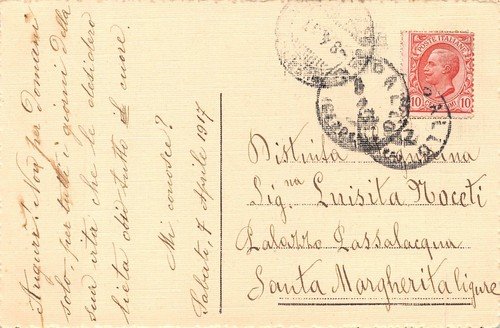 Auguri! Non per domani
solo, per tutti i giorni della
sua vita che le desidero
lieta con tutto il cuore.
Mi conosce?
Sabato, 7 Aprile 1917
POSTE ITALIANE
10 10
Distinta
Sig.na Luisita Noceti
Palazzo Lassalacqua
Santa Margherita ligure